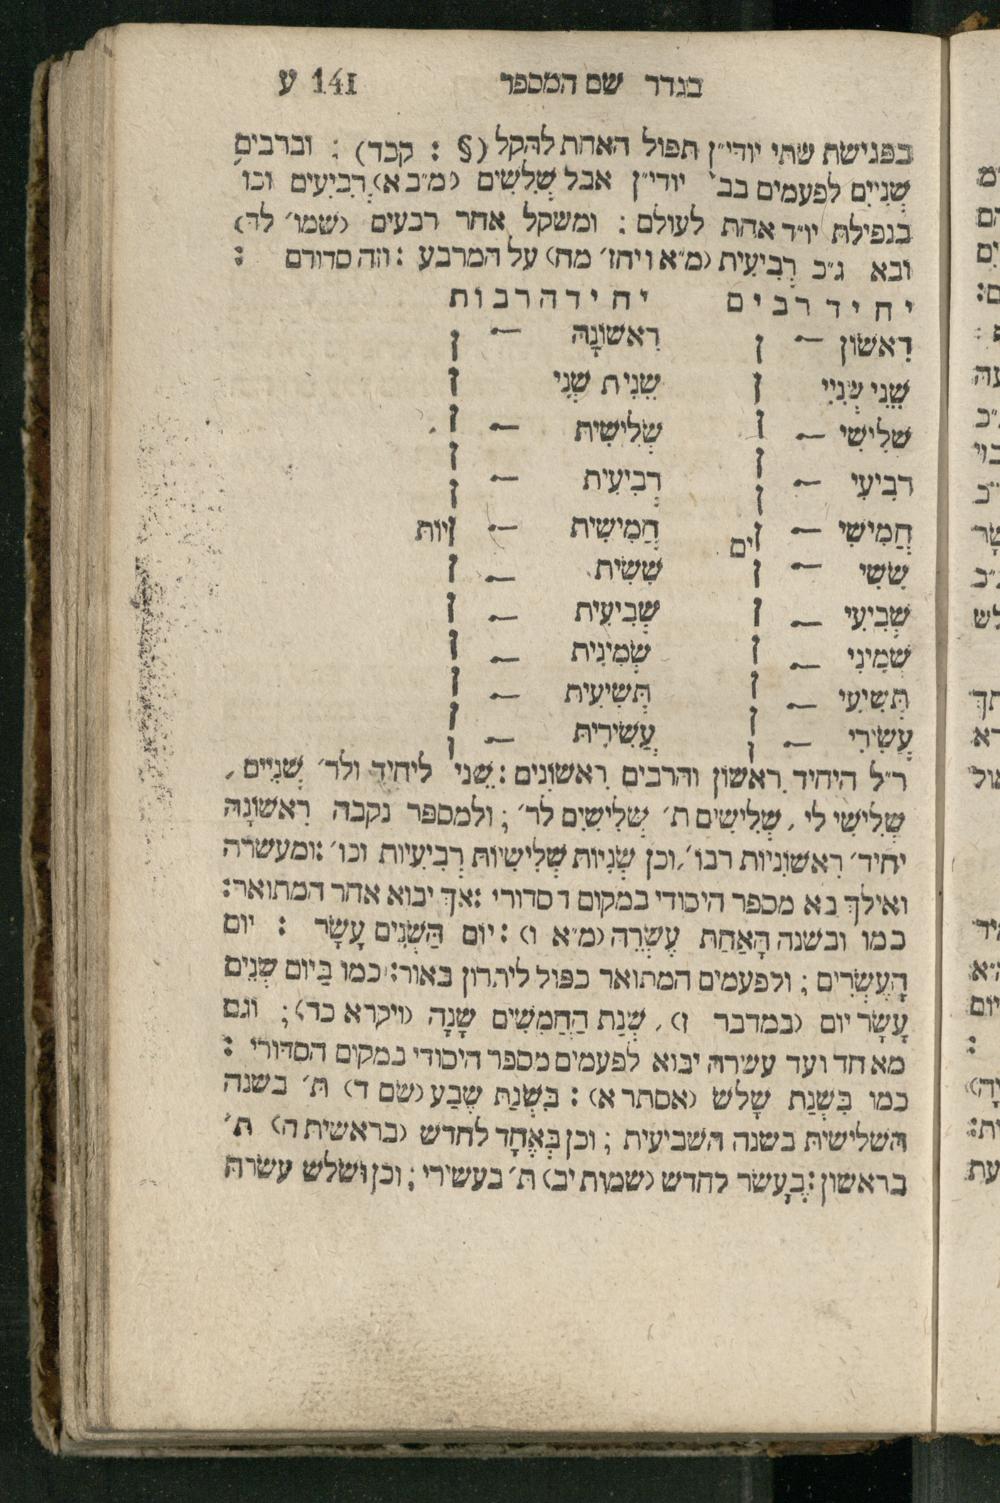 בגדר שם המספר 141 ע
בפגישת שתי יודי״ן תפול האחת להקל (§ : קכד) ; וברבים
שְׁנִיִּים לפעמים בב׳ יודי״ן אבל שְׁלִשִׁים (מ״ב א) רְבִיעִים וכו
בנפילת יו״ד אחת לעולם : ומשקל אחר רבעים (שמו׳ לד)
ובא ג״כ רְבִיעִית (מ״א ו ויחז׳ מח) על המרבע : וזה סדורם :
יחיד רבים יחידה רבות
רִאשׁוֹן – רִאשׁוֹנָה –
שֵׁנִי שְׁנִיִּי שֵׁנִית שְׁנִי
שלִישִׁי – שְׁלִישִׁית –
רבִיעִי – רְבִיעִית –
חֲמִישִׁי – ים חֲמִישִׁית – יות
שִׁשִּׁי – שִׁשִּׁית –
שְׁבִיעִי – שְׁבִיעִית –
שְׁמִינִי – שְׁמִינִית –
תְּשִׁיעִי – תְּשִׁיעִית –
עֲשִׂירִי – עֲשִׂירִית –
ר״ל היחיד רִאשון והרבים רִאשונִים : שֵׁנִי ליחיד ולר׳ שְׁנִיִּים ,
שְׁלִישִׁי לי׳ שְׁלִישִׁים ת׳ שְׁלִישִׁיִּם לר׳ ; ולמספר נקבה רִאשׁוֹנָה
יחיד׳ רִאשׁוֹנִיּוֹת רבו׳, וכן שְׁנִיּוֹת שְׁלִישִׁיּוֹת רְבִיעִיּוֹת וכו׳ : ומעשרה
ואילך בא מספר היסודי במקום הסדורי : אך יבוא אחר המתואר :
כמו ובשנה הָאַחַת עֶשְׂרֵה (מ״א ו) : יוֹם הַשְּׁנִים עָשָׂר : יום
הָעֶשְׂרִים ; ולפעמים המתואר כפול ליתרון באור : כמו בַּיוֹם שְׁנֵים
עָשָׂר יום (במדבר ז) , שְׁנַת הַחֲמִשִּׁים שָׁנָה (ויקרא כד) ; וגם
מאחד ועד עשרה יבוא לפעמים מספר היסודי במקום הסדורי :
כמו בִּשְׁנַת שָׁלשׁ (אסתר א) : בִּשְׁנַת שֶׁבַע (שם ד) ת׳ בשנה
השלישית בשנה השביעית ; וכן בְּאֶחָד לחדש (בראשית ה) ת׳
בראשון : בֶּעָשׂר לחדש (שמות יב) ת׳ בעשירי ; וכן ושלש עשרה